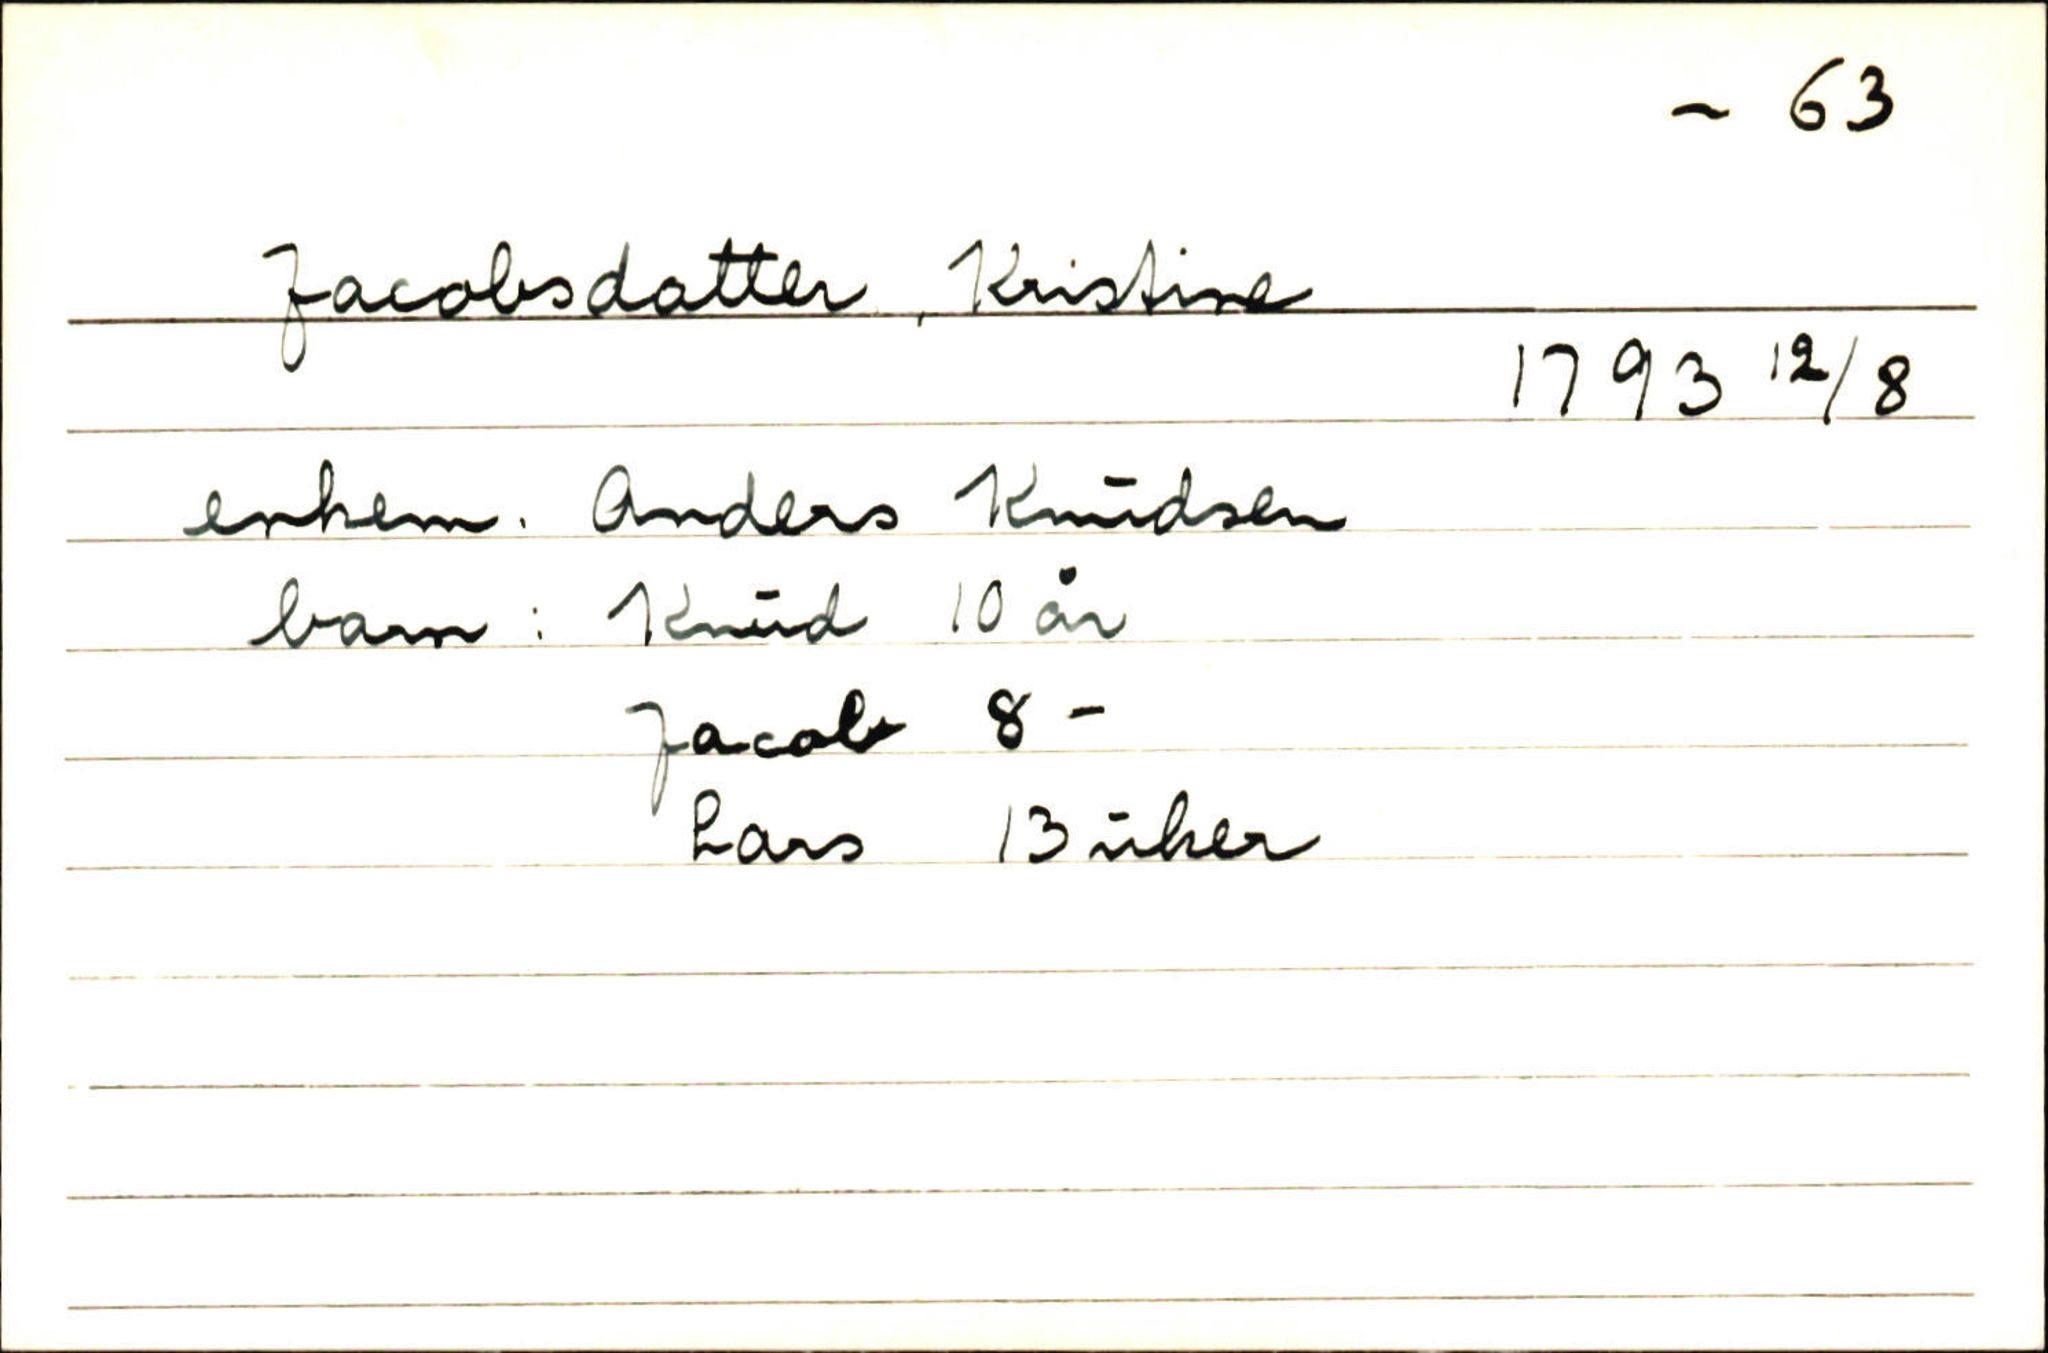 ~ 63
Jacobsdatter, Kristine
1793 12/8
enkem. Anders Knudsen
barn: Knud 10 år
Jacob 8 -
Lars 13 uker